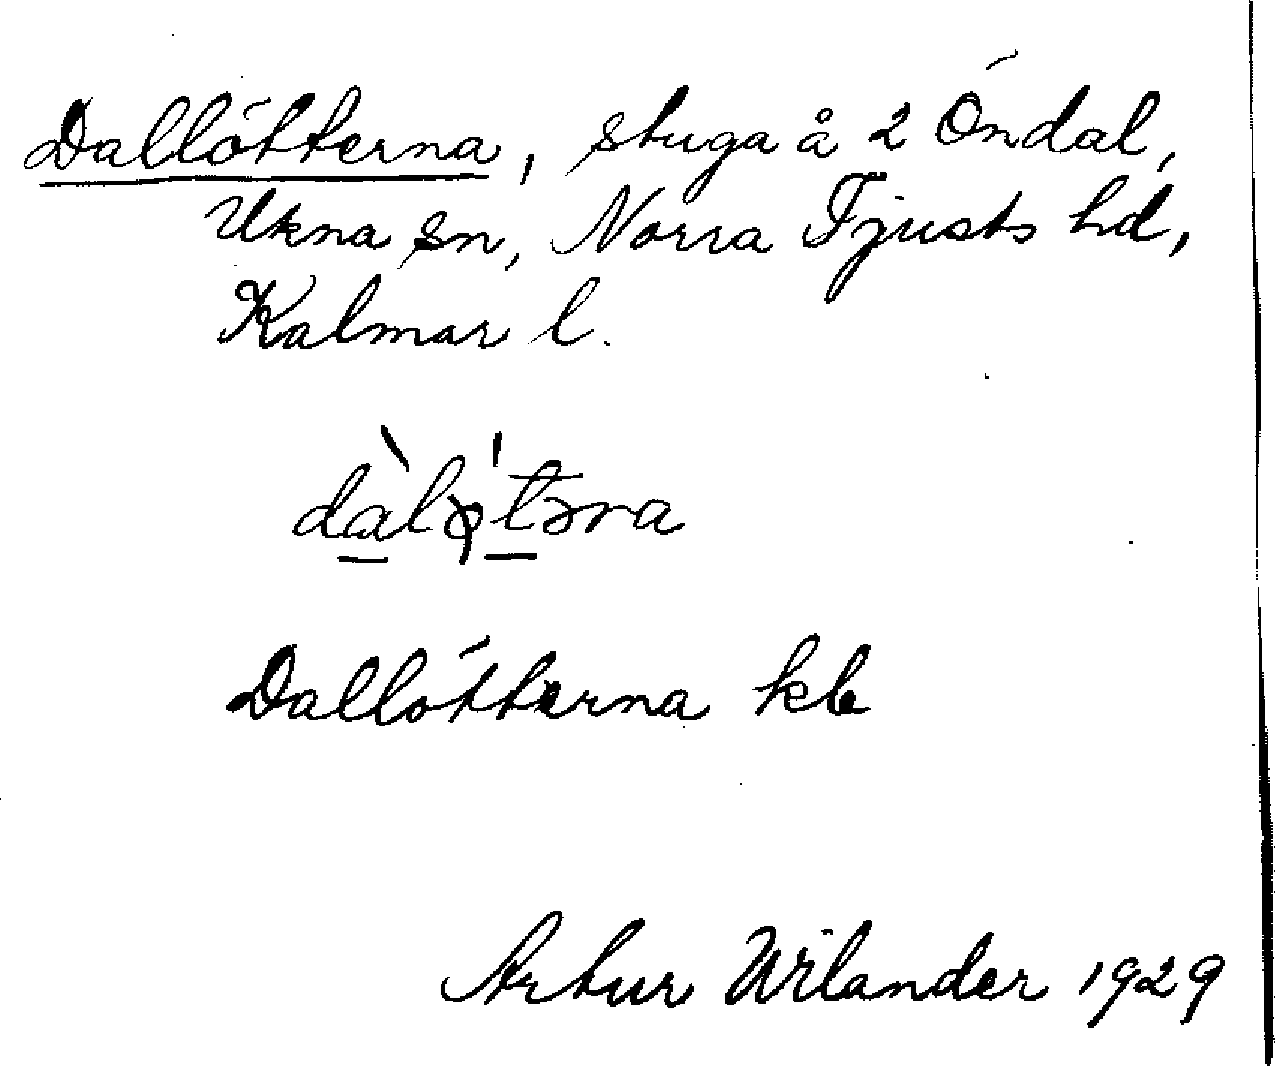 Dallötterna, stuga å 2 Öndal,
Ukna sn, Norra Tjusts hd,
Kalmar l.
dàlǫ'təra
Dallötterna kb
Artur Wilander 1929